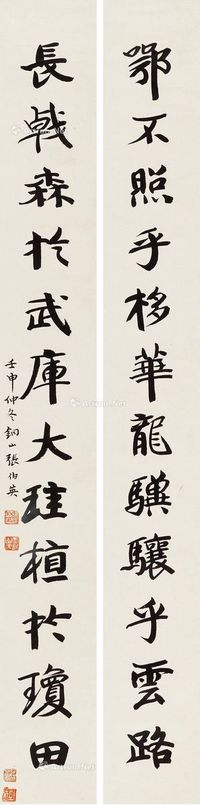 鄂不照乎栘華龍驥驤乎雲路
長戟森於武庫大珪植於瓊田
壬申仲冬銅山張伯英